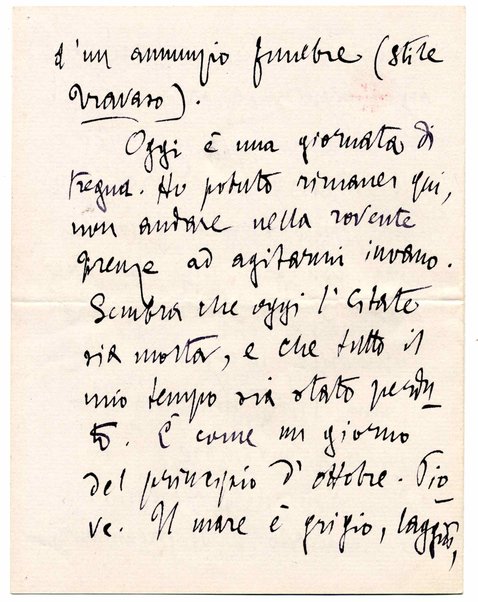 d'un annunzio funebre (stile
Vravaro).
Oggi è una giornata di
tregua. Ho potuto rimaner qui,
non andare nella rovente
Firenze ad agitarmi invano.
Sembra che oggi l'Estate
sia morta, e che tutto il
mio tempo sia stato perdu-
to. È come un giorno
del principio d'ottobre. Pio-
ve. Il mare è grigio, laggiù,